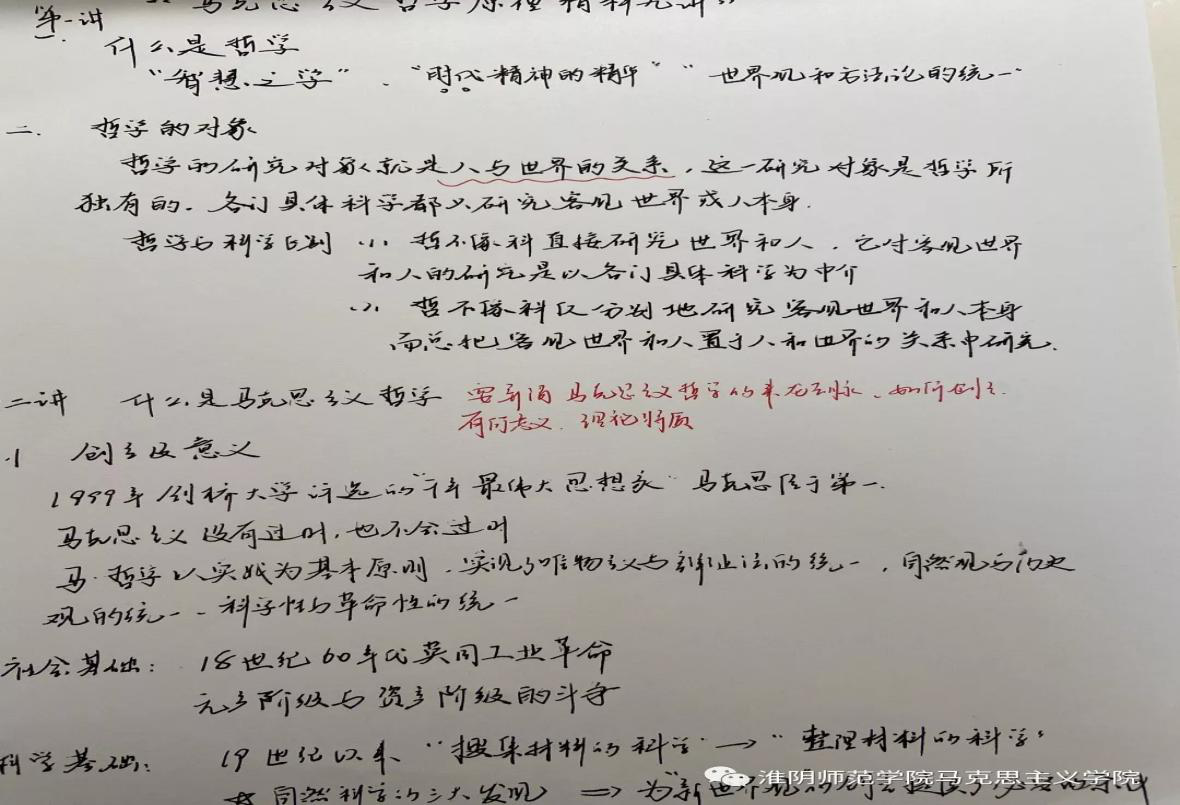 第一讲 《马克思主义哲学原理精粹九讲》
一. 什么是哲学
"智慧之学"、"时代精神的精华" "世界观和方法论的统一"
二. 哲学的对象
哲学的研究对象就是人与世界的关系，这一研究对象是哲学所
独有的。各门具体科学都只研究客观世界或人本身.
哲学与科学区别 (1) 哲不像科直接研究世界和人，它对客观世界
和人的研究是以各门具体科学为中介
(2) 哲不像科仅分别地研究客观世界和人本身
而总把客观世界和人置于人和世界的关系中研究.
二讲 什么是马克思主义哲学 要弄清马克思主义哲学的来龙去脉、如何创立
有何意义、理论特质
1 创立及意义
1999年剑桥大学评选的"千年最伟大思想家"马克思居于第一.
马克思主义没有过时，也不会过时
马·哲学以实践为基本原则，实现了唯物主义与辩证法的统一，自然观与历史
观的统一、科学性与革命性的统一
社会基础: 18世纪60年代英国工业革命
无产阶级与资产阶级的斗争
科学基础: 19世纪以来、"搜集材料的科学"→"整理材料的科学"
自然科学的三大发现 ⇒ 为"新世界观的创立提供了必要的
淮阴师范学院马克思主义学院